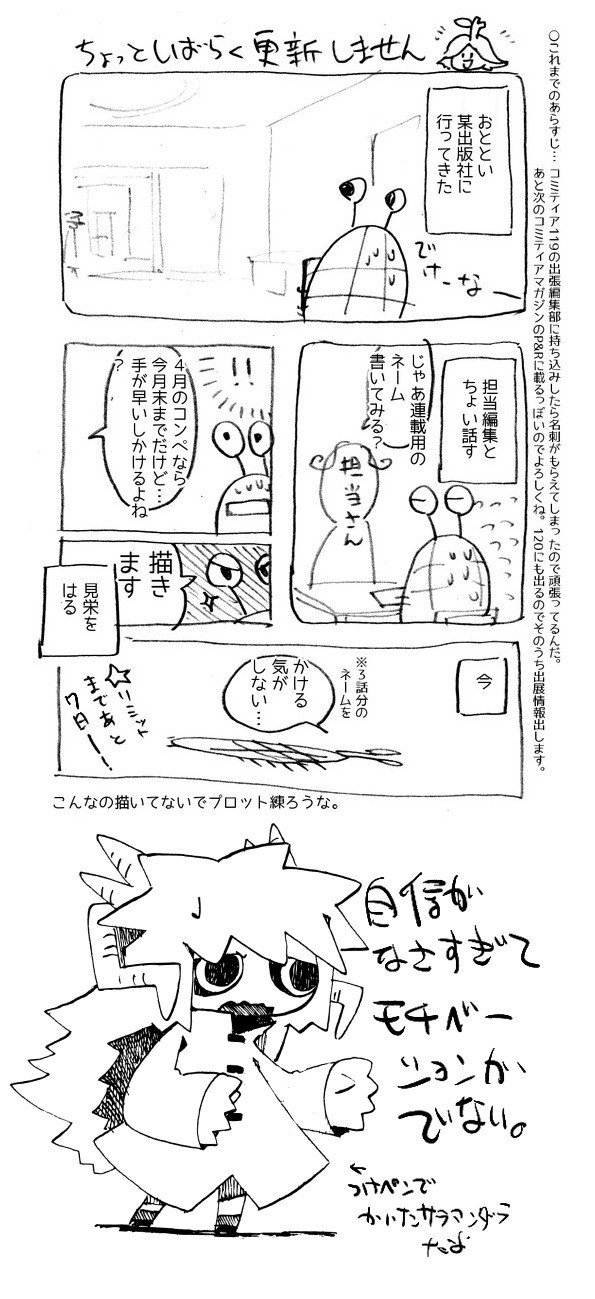 ちょっとしばらく更新しません
○これまでのあらすじ… コミティア119の出張編集部に持ち込みしたら名刺がもらえてしまったので頑張ってるんだ。
あと次のコミティアマガジンのP&Rに載るっぽいのでよろしくね。120にも出るのでそのうち出展情報出します。
おととい
某出版社に
行ってきた
でけーなー
担当編集と
ちょい話す
じゃあ連載用の
ネーム
書いてみる?
担当さん
!!
4月のコンペなら
今月末までだけど…
手が早いしかけるよね
?
描き
ます
見栄を
はる
今
※3話分の
ネームを
かける
気が
しない…
☆リミット
まであと
7日ー!
こんなの描いてないでプロット練ろうな。
自信が
なさすぎて
モチベー
ションが
でない。
←
つけペンで
かいたサラマンダラ
だよ